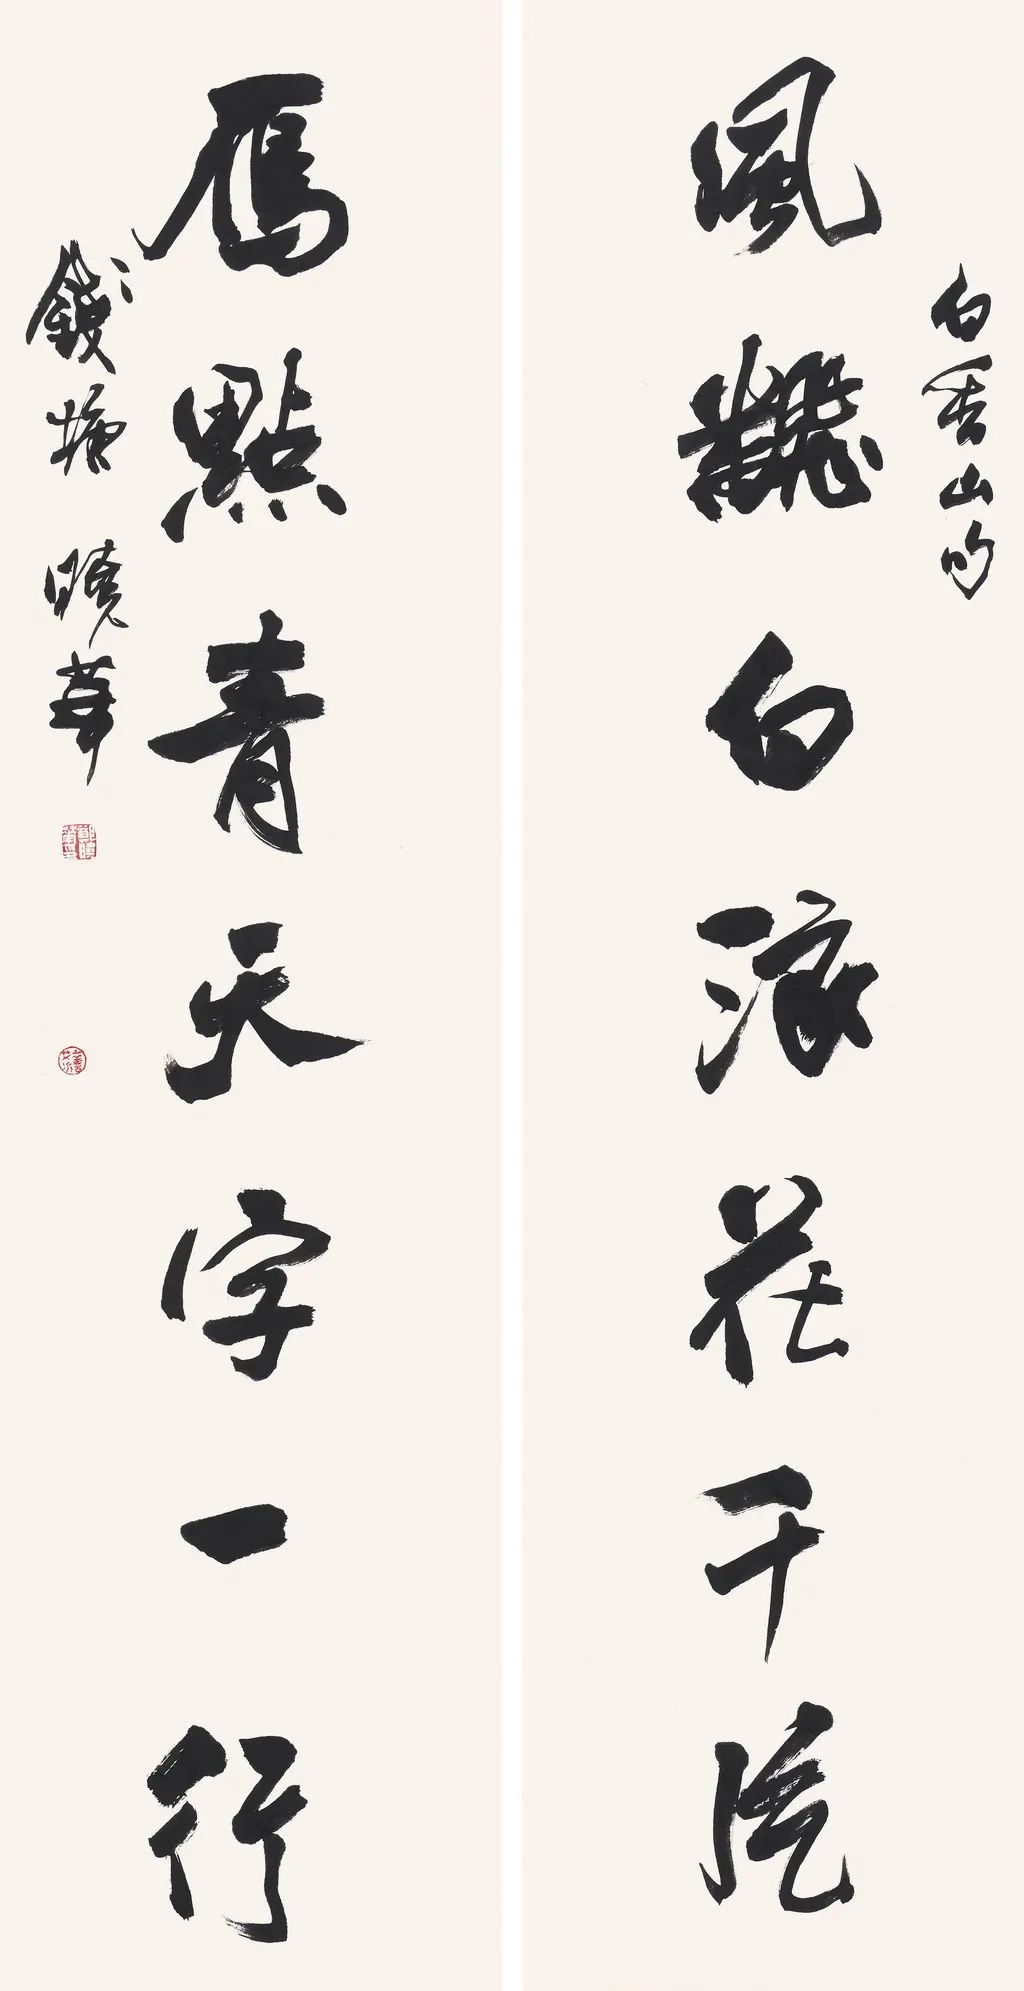 白香山句
風飜白浪花千片
鴈點青天字一行
錢塘曉華